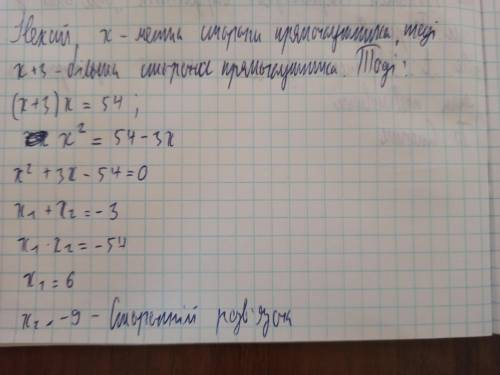 Нехай, x - менша сторона прямокутника, тоді
x+3 - більша сторона прямокутника. Тоді:
(x+3)x = 54;
x² = 54-3x
x² + 3x - 54 = 0
x₁ + x₂ = -3
x₁ · x₂ = -54
x₁ = 6
x₂ = -9 - Сторонній розв'язок